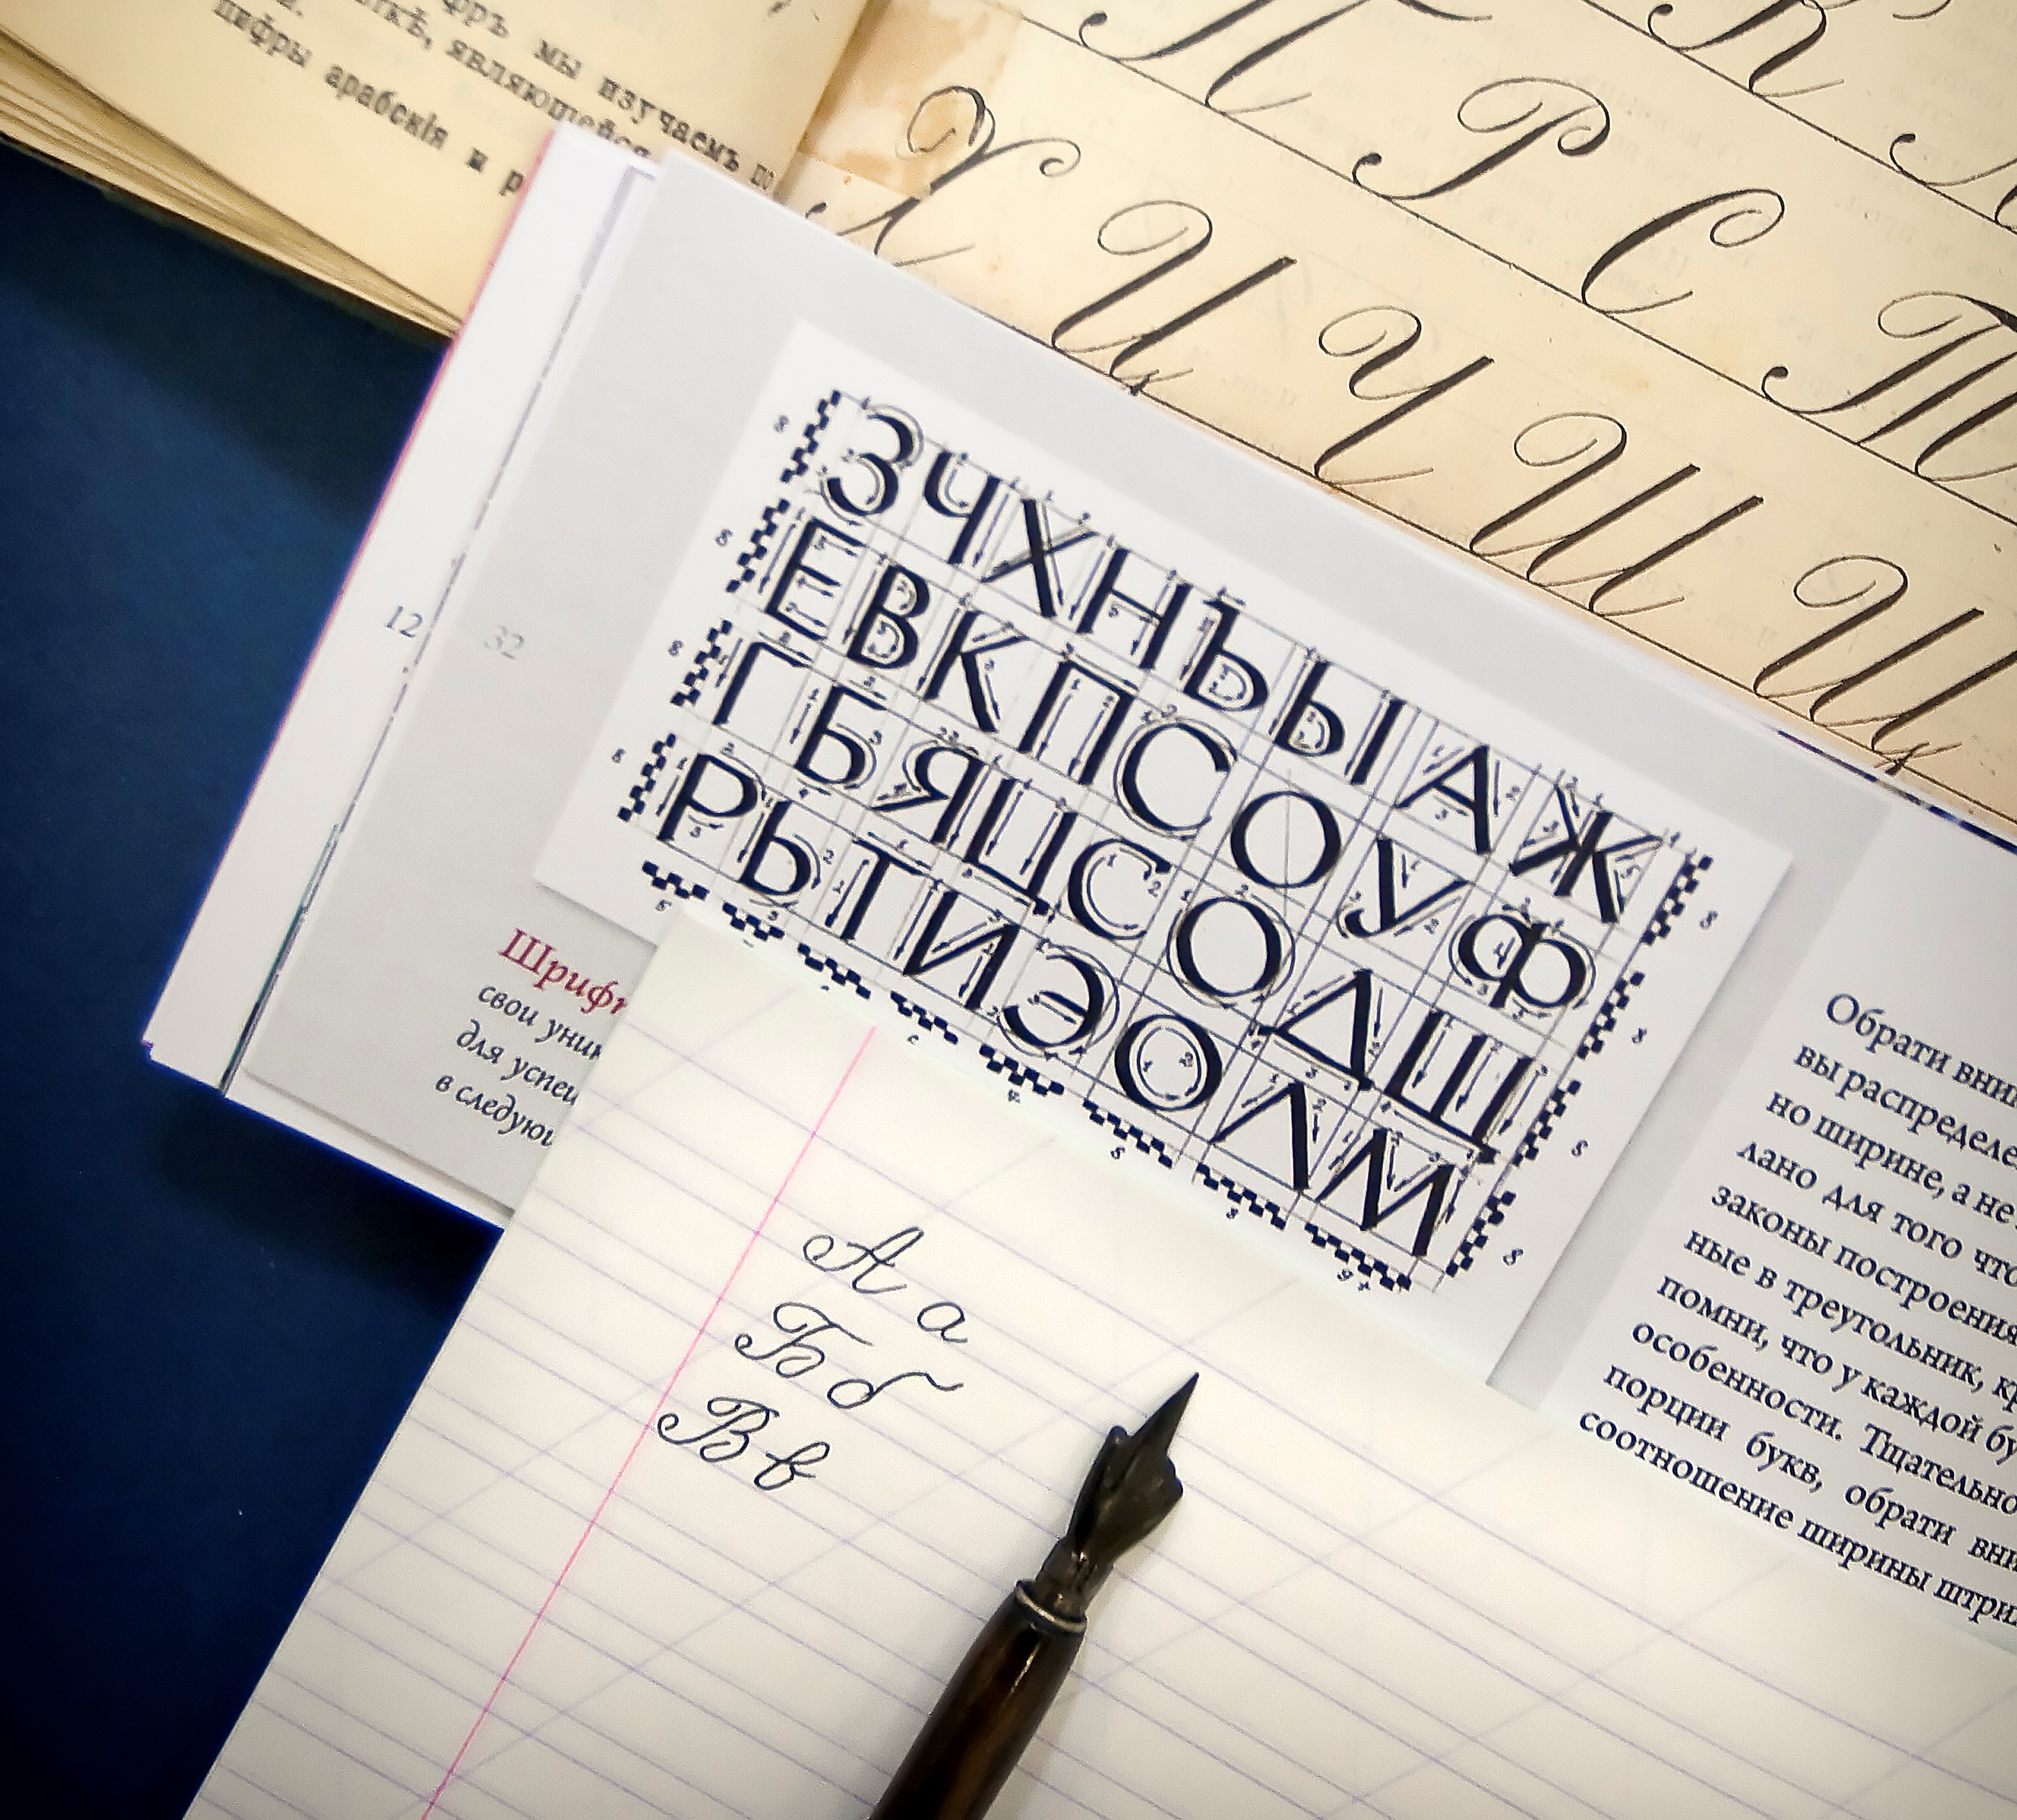 мы изучаемъ по
являющейся
цифры арабскія и р
П
К
Р
Х
С
Ц
Т
Ч
Ш
Щ
12
32
ЗЧХНЪЫАЖ
ЕВКПСОУФ
ГБЯЦСОДЩ
РЬТИЭОЛМ
Шрифт
свои уник
для успеш
в следующ
Обрати вним
вы распределе
но ширине, а не
лано для того что
законы построения
ные в треугольник, кр
помни, что у каждой бу
особенности. Тщательно
порции букв, обрати вни
соотношение ширины штри
А а
Б б
В в